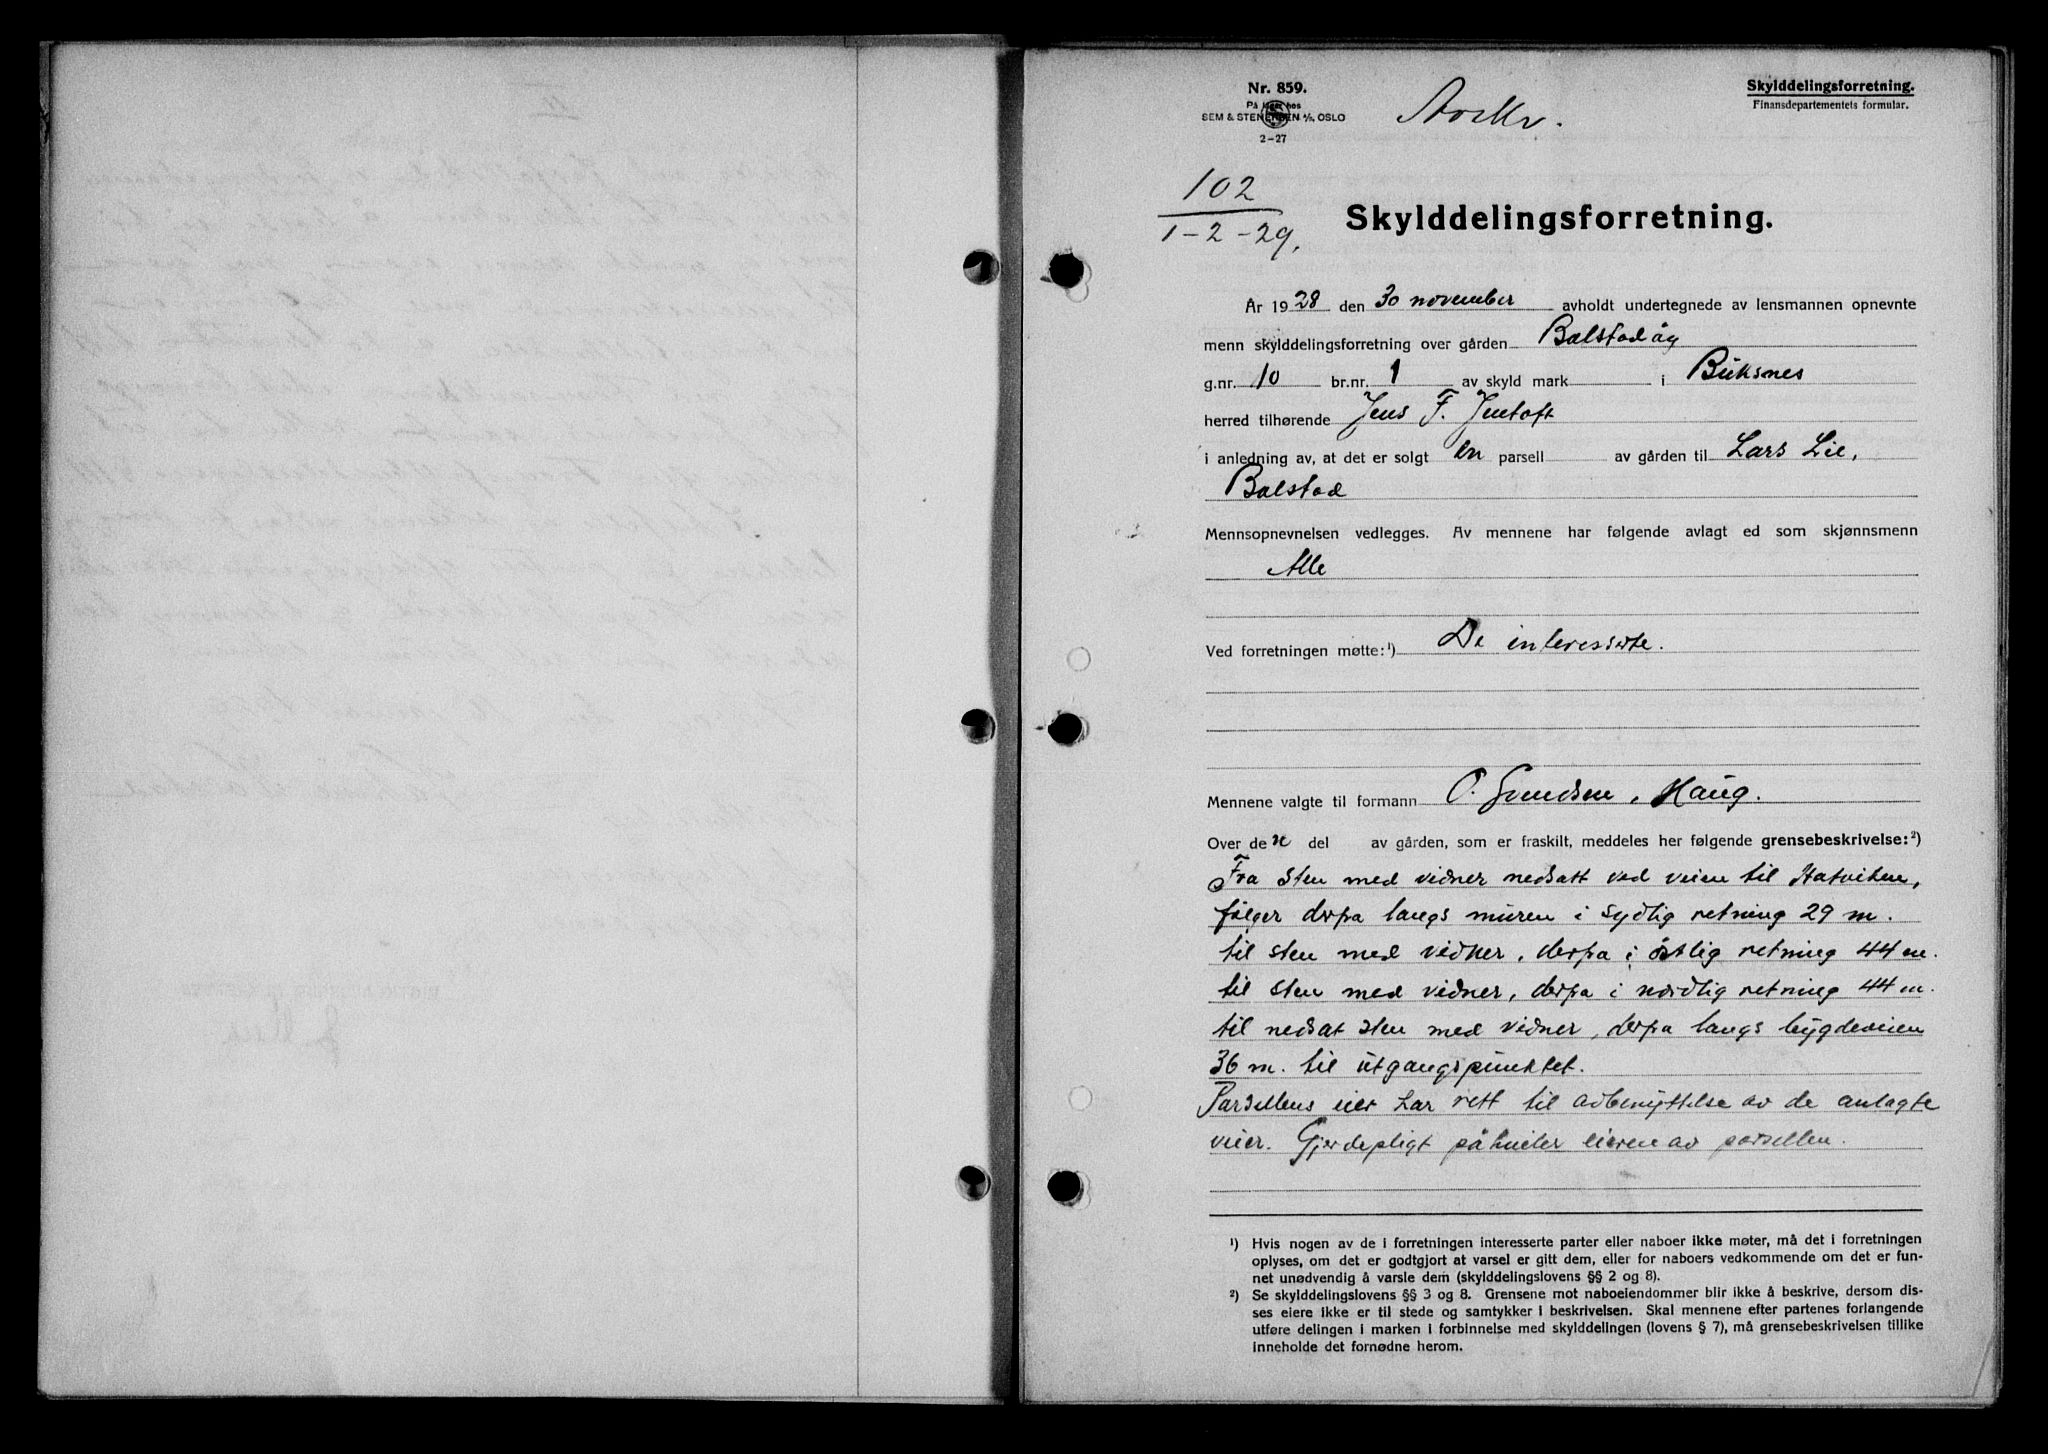 Nr. 859.
På lager hos
SEM & STENERSEN A/S, OSLO
2-27
Skylddelingsforretning.
Finansdepartementets formular.
102
1-2-29.
Skylddelingsforretning.
År 1928 den 30 november avholdt undertegnede av lensmannen opnevnte
menn skylddelingsforretning over gården Balstadøy
g.nr. 10 br.nr. 1 av skyld mark i Buksnes
herred tilhørende Jens F. Jentoft
i anledning av, at det er solgt en parsell av gården til Lars Lie,
Balstad
Mennsopnevnelsen vedlegges. Av mennene har følgende avlagt ed som skjønnsmenn
Alle
Ved forretningen møtte:¹) De interesserte.
Mennene valgte til formann O. Svendsen, Haug.
Over den del av gården, som er fraskilt, meddeles her følgende grensebeskrivelse:²)
Fra sten med vidner nedsatt ved veien til Hatviken,
følger derfra langs muren i sydlig retning 29 m.
til sten med vidner, derfra i østlig retning 44 m.
til sten med vidner, derfra i nordlig retning 44 m.
til nedsat sten med vidner, derfra langs bygdeveien
36 m. til utgangspunktet.
Parsellens eier har rett til adbenyttelse av de anlagte
veier. Gjerdepligt påhviler eieren av parsellen.
¹) Hvis nogen av de i forretningen interesserte parter eller naboer ikke møter, må det i forretningen
oplyses, om det er godtgjort at varsel er gitt dem, eller for naboers vedkommende om det er fun-
net unødvendig å varsle dem (skylddelingslovens §§ 2 og 8).
²) Se skylddelingslovens §§ 3 og 8. Grensene mot naboeiendommer blir ikke å beskrive, dersom dis-
ses eiere ikke er til stede og samtykker i beskrivelsen. Skal mennene efter partenes forlangende
utføre delingen i marken i forbinnelse med skylddelingen (lovens § 7), må grensebeskrivelsen tillike
inneholde det fornødne herom.